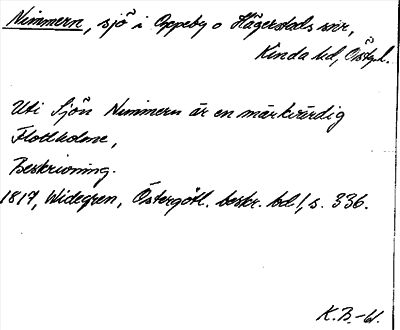 Nimmern, sjö i Oppeby o Hägerstads snr,
Kinda hd, Östgl.
Uti Sjön Nimmern är en märkvärdig
Flottholme,
Beskrivning.
1817, Widegren, Östergötl. beskr. bd 1, s. 336.
K.B.-W.